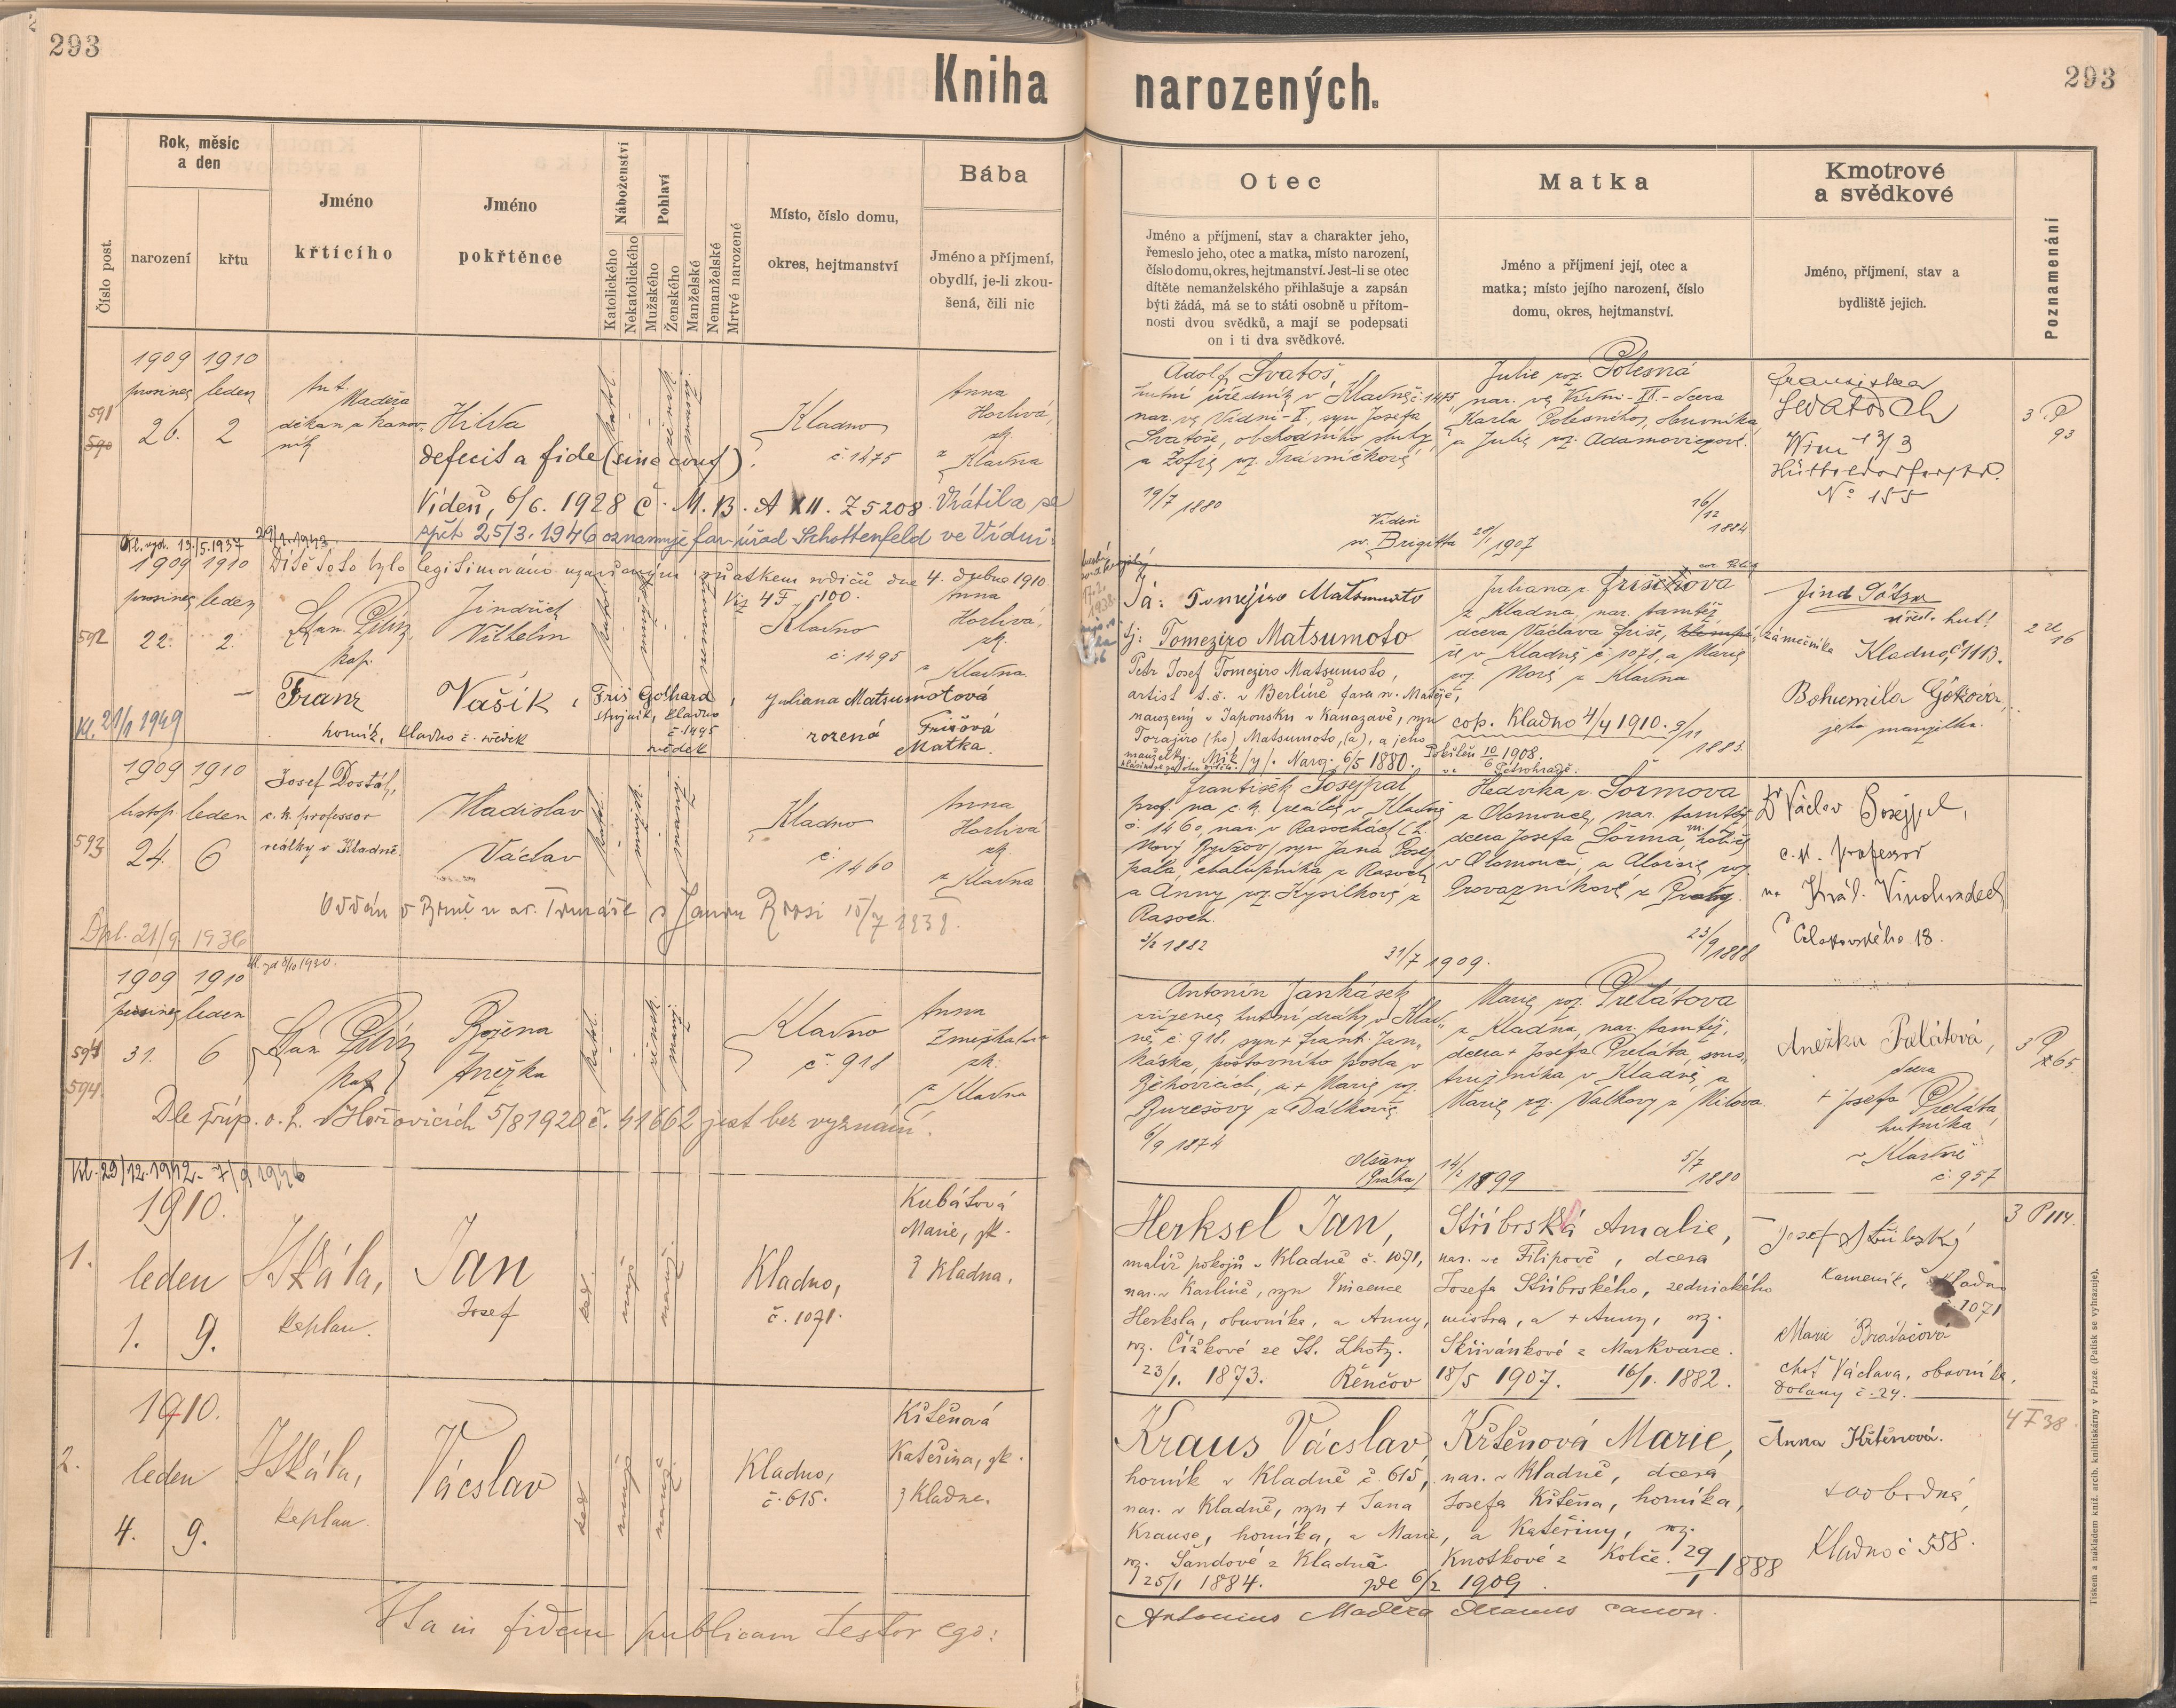 293
293
Kniha
narozených.
Číslo post.
Rok, měsíc
a den
narození
křtu
Jméno
křtícího
Jméno
pokřtěnce
Náboženství
Katolického
Nekatolického
Pohlaví
Mužského
Ženského
Manželské
Nemanželské
Mrtvé narozené
Místo, číslo domu,
okres, hejtmanství
Bába
Jméno a příjmení,
obydlí, je-li zkou-
šená, čili nic
Otec
Jméno a příjmení, stav a charakter jeho,
řemeslo jeho, otec a matka, místo narození,
číslo domu, okres, hejtmanství. Jest-li se otec
dítěte nemanželského přihlašuje a zapsán
býti žádá, má se to státi osobně u přítom-
nosti dvou svědků, a mají se podepsati
on i ti dva svědkové.
Matka
Jméno a příjmení její, otec a
matka; místo jejího narození, číslo
domu, okres, hejtmanství.
Kmotrové
a svědkové
Jméno, příjmení, stav a
bydliště jejich.
Poznamenání
1909 1910
prosinec leden
591
590
26. 2
Ant.
Madĕra
děkan a kanov-
ník
Hilda
Kladno
č. 1475
Anna
Horlivá,
zk.
z Kladna
defecit a fide (sine conf).
Vídeň, 6/6. 1928 č. M. B. A XII. Z 5208. Vrátila se
zpět 25/3. 1946 oznamuje far. úřad Schottenfeld ve Vídni.
Adolf Svatoš,
hutní úředník v Kladně č. 1475,
nar. ve Vídni-I., syn Josefa
Svatoše, obchodního sluhy,
a Žofie roz. Trávníčkové
19/7 1880
Vídeň
sv. Brigitta 28/1 1907
Julie roz. Polesná
nar. ve Vídni-II.- dcera
Karla Polesného, obuvníka
a Julie roz. Adamoviczové.
16/12
1884
Franziska
Svatosch
Wien 13/3
N° 155
3 P
93
Kl. vyd. 13./5.1937
29/1.1943.
1909 1910
Dítě toto bylo legitimováno uzavřeným sňatkem rodičů dne 4. dubna 1910.
Viz 4 F 100.
prosinec leden
592
22. 2.
kap.
Jindřich
Vilhelm
Kladno
č. 1495
Anna
Horlivá,
zk.
z Kladna.
Franz Vašík,
horník, Kladno č. svědek
Friš Gothard,
strojník, Kladno
č. 1495
svědek
Juliana Matsumotová
rozená Frišová
Matka.
Kl. 21/1 1949
Já: Tomejiro Matsumoto
tj: Tomeziro Matsumoto
Petr Josef Tomeziro Matsumoto,
artist t. č. v Berlíně fara sv. Matěje,
narozený v Japonsku v Kanazavě, syn
Torajiro (ho) Matsumoto, (a), a jeho
manželky Mik /y/. Naroz. 6/5 1880.
Pokřtěn 10/6 1908.
v Petrohradě.
Juliana r. Frišova
z Kladna, nar. tamtéž
dcera Václava Friše, zámečníka
v Kladně č. 1078, a Marie
roz. Nové z Kladna
cop. Kladno 4/4 1910. 9/11
1883.
Jind. Götz
úřed. hut.
Kladno, č 1113.
Bohumila Götzová,
jeho manželka.
2 U
16
1909 1910
listop. leden
593
24. 6
Josef Dostál,
c. k. professor
reálky v Kladně.
Vladislav
Václav
Kladno
č.
1460
Anna
Horlivá
zk.
z Kladna
Oddán v Brně u sv. Tomáše s Janou Rossi 15/7 1938.
Dpl. 21/9. 1936
František Posejpal
prof. na c. k. reálce v Kladně
č. 1460, nar. v Rasochách (h.
Nový Bydžov) syn Jana Posej-
pala, chalupníka z Rasoch
a Anny roz. Kysilkové z
Rasoch.
3/2 1882
31/7 1909.
Hedvika r. Šormova
z Olomouce, nar. tamtéž,
dcera Josefa Šorma,
v Olomouci, a Aloisie roz.
Provazníkové z Prahy.
23/9 1888
Dr Václav Posejpal,
c. k. professor
na Král. Vinohradech
Čelakovského 18.
1909 1910
prosinec leden
594
594.
31. 6
kap.
Božena
Anežka
Kladno
č. 918
Anna
zk.
z Kladna
Dle příp. o. h. v Hořovicích 5/8 1920 č. 41662 jest bez vyznání.
Antonín Jankásek
zřízenec hutní dráhy v Klad-
ně č. 918, syn + Frant. Jan-
káska, poštovního posla v
Běchovicích, a + Marie roz.
Burešovy z Dálkovic
6/9 1874
Olšany
(Praha) 14/2 1899
Marie roz. Prelátova
z Kladna, nar. tamtéž,
dcera + Josefa Preláta, sous-
tružníka v Kladně, a
Marie roz. Valkovy z Milova.
5/7
1880
Anežka Prelátová,
dcera
+ Josefa Preláta,
hutníka
v Kladně
č. 957
3 P
265.
Kl. 29/12.1942.- 7/9 1946
1910.
1.
leden
1. 9.
Skála,
kaplan.
Jan
Josef
Kladno,
č. 1071.
Kubátová
Marie, zk.
z Kladna.
Herksel Jan,
malíř pokojů v Kladně č. 1071,
nar. v Karlíně, syn Vincence
Herksla, obuvníka, a Anny,
roz. Čížkové ze St. Lhoty.
23/1. 1873. Řenčov 18/5 1907. 16/1. 1882.
Stříbrská Amalie,
nar. ve Filipově, dcera
Josefa Stříbrského, zednického
mistra, a + Anny, roz.
Skřivánkové z Markvarce.
Josef Stříbrský
kameník, Kladno
č. 1071
Marie Braďáčová
choť Václava, obuvníka,
Dolany č. 24.
3 P 114.
1910.
2.
leden
4. 9.
Skála,
kaplan.
Vácslav
Kladno,
č. 615.
Křtěnová
Kateřina, zk.
z Kladna.
Kraus Vácslav
horník v Kladně č. 615,
nar. v Kladně, syn + Jana
Krause, horníka, a Marie,
roz. Šandové z Kladna.
25/1 1884. zde 6/2 1909.
Křtěnová Marie,
nar. v Kladně, dcera
Josefa Křtěna, horníka,
a Kateřiny, roz.
Knotkové z Kolče. 29/1 1888
Anna Křtěnová.
svobodná,
Kladno č 558.
4 F 38.
Ita in fidem publicam testor ego:
Antonius Maděra decanus canon.
Tiskem a nákladem kníž. arcib. knihtiskárny v Praze. (Patisk se vyhrazuje).